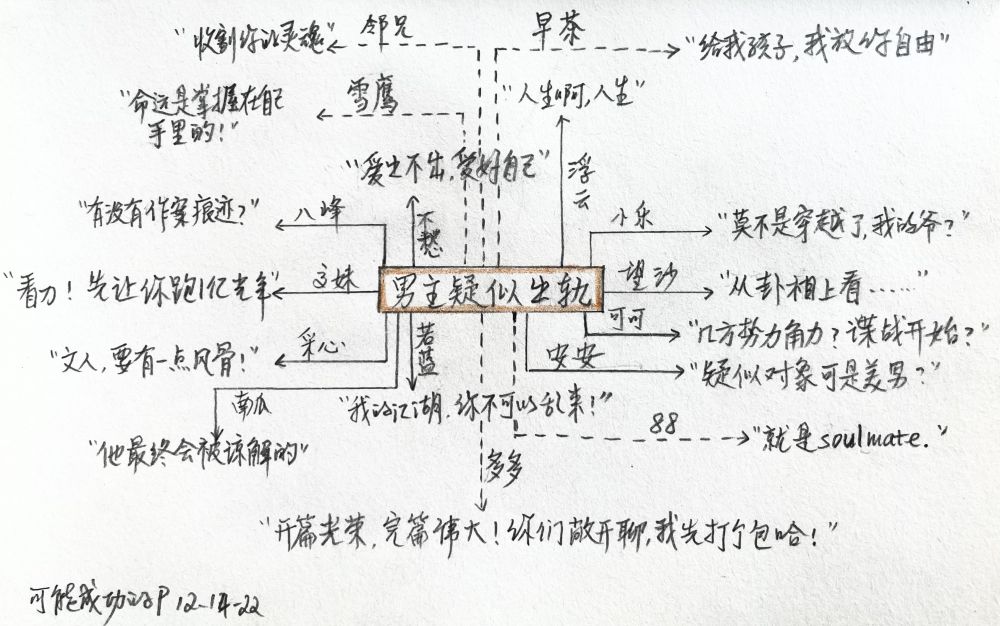 "收割你的灵魂"
邻兄
早茶
"给我孩子,我放你自由"
"命运是掌握在自己
手里的!"
雪鹰
"人生啊,人生"
"爱出不出,爱好自己"
浮云
"有没有作案痕迹?"
八峰
不愁
小乐
"莫不是穿越了,我的爷?"
"看刀!先让你跑1亿光年"
文妹
男主疑似出轨
望沙
"从卦相上看……"
可可
"几方势力角力?谍战开始?"
"文人,要有一点风骨!"
采心
若蓝
安安
"疑似对象可是美男?"
南瓜
"我的江湖,你不可以乱来!"
88
"就是soulmate."
"他最终会被谅解的"
多多
"开篇光荣,完篇伟大!你们敞开聊,我先打个包哈!"
可能成功的P 12-14-22